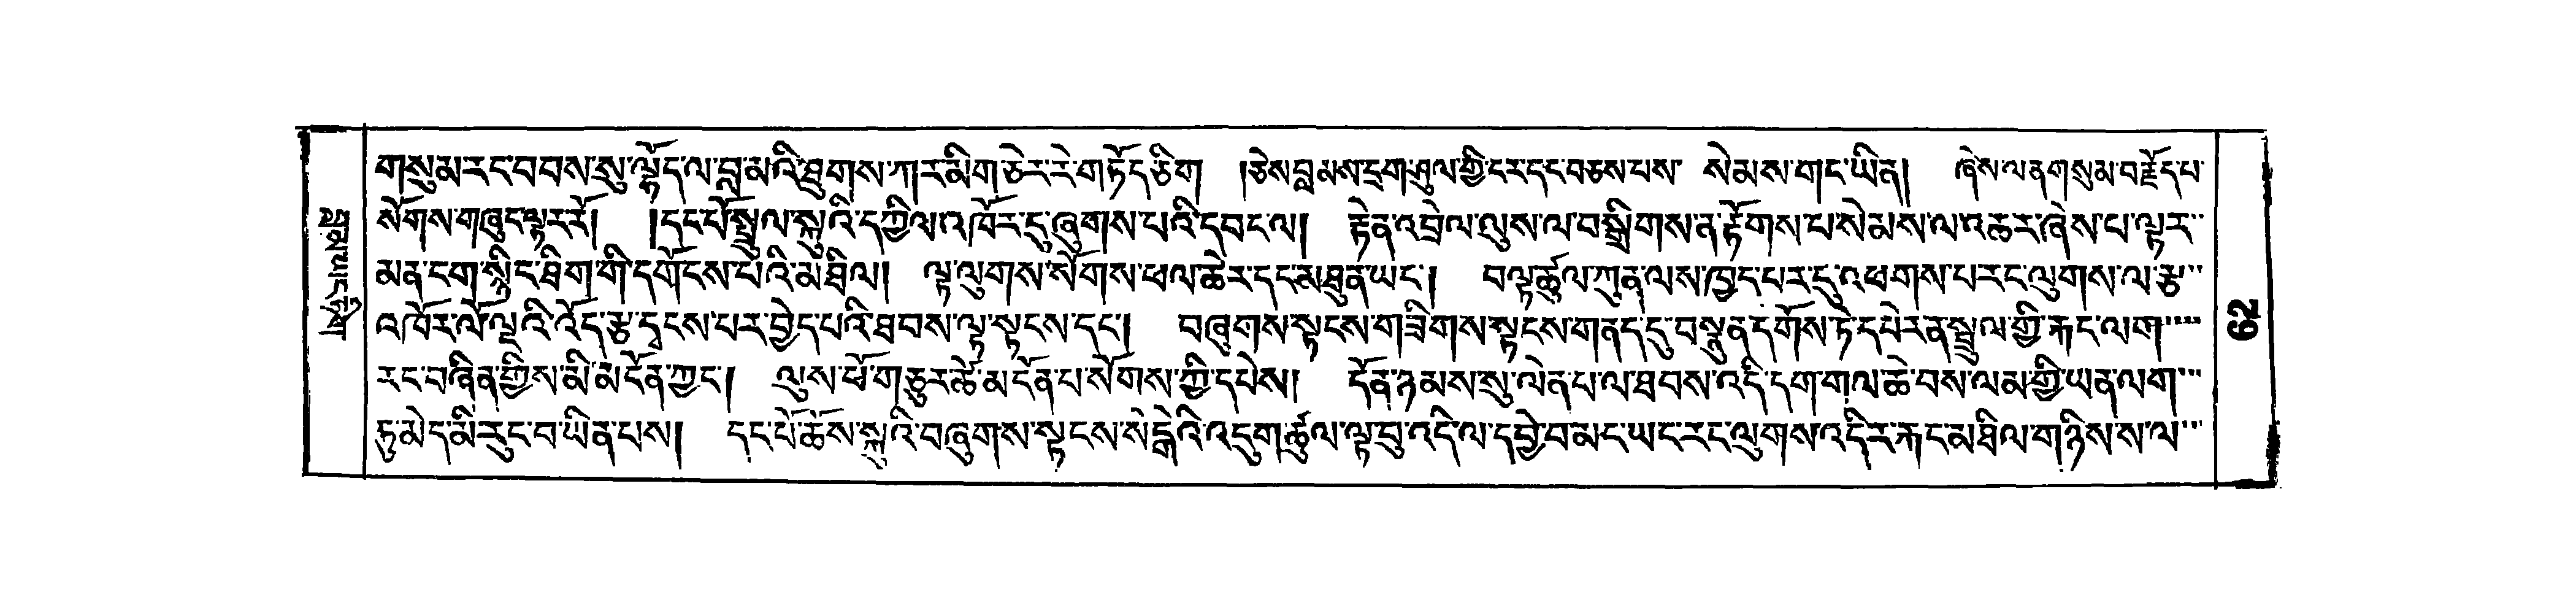 གསུམ་རང་བབས་སུ་ལྷོད་ལ་བླ་མའི་ཐུགས་ཀར་མིག་ཅེར་རེ་གཏོད་ཅིག །ཅེས་བླ་མས་དྲག་ཤུལ་གྱི་ངར་དང་བཅས་པས་ སེམས་གང་ཡིན། ཞེས་ལན་གསུམ་བརྗོད་པ་
སོགས་གཞུང་ལྟར་རོ། །དང་པོ་སྤྲུལ་སྐུའི་དཀྱིལ་འཁོར་དུ་ཞུགས་པའི་དབང་ལ། རྟེན་འབྲེལ་ལུས་ལ་བསྒྲིགས་ན་རྟོགས་པ་སེམས་ལ་འཆར་ཞེས་པ་ལྟར་
མན་ངག་སྙིང་ཐིག་གི་དགོངས་པའི་མཐིལ། ལྟ་ལུགས་སོགས་ཕལ་ཆེར་དང་མཐུན་ཡང་། བལྟ་ཚུལ་ཀུན་ལས་ཁྱད་པར་དུ་འཕགས་པ་རང་ལུགས་ལ་རྩ་
འཁོར་ལོ་ལྔའི་འོད་རྩ་དྭངས་པར་བྱེད་པའི་ཐབས་ལྟ་སྟངས་དང་། བཞུགས་སྟངས་གཟིགས་སྟངས་གནད་དུ་བསྣུན་དགོས་ཏེ་དཔེར་ན་སྦྲུལ་གྱི་རྐང་ལག་
རང་བཞིན་གྱིས་མི་མངོན་ཀྱང་། ལུས་ཕོ་གཅུར་ཚེ་མངོན་པ་སོགས་ཀྱི་དཔེས། དོན་ཉམས་སུ་ལེན་པ་ལ་ཐབས་འདི་དག་གལ་ཆེ་བས་ལམ་གྱི་ཡན་ལག་
ཏུ་མེད་མི་རུང་བ་ཡིན་པས། དང་པོ་ཆོས་སྐུའི་བཞུགས་སྟངས་སེངྒེའི་འདུག་ཚུལ་ལྟ་བུ་འདི་ལ་དབྱེ་བ་མང་ཡང་རང་ལུགས་འདིར་རྐང་མཐིལ་གཉིས་ས་ལ་